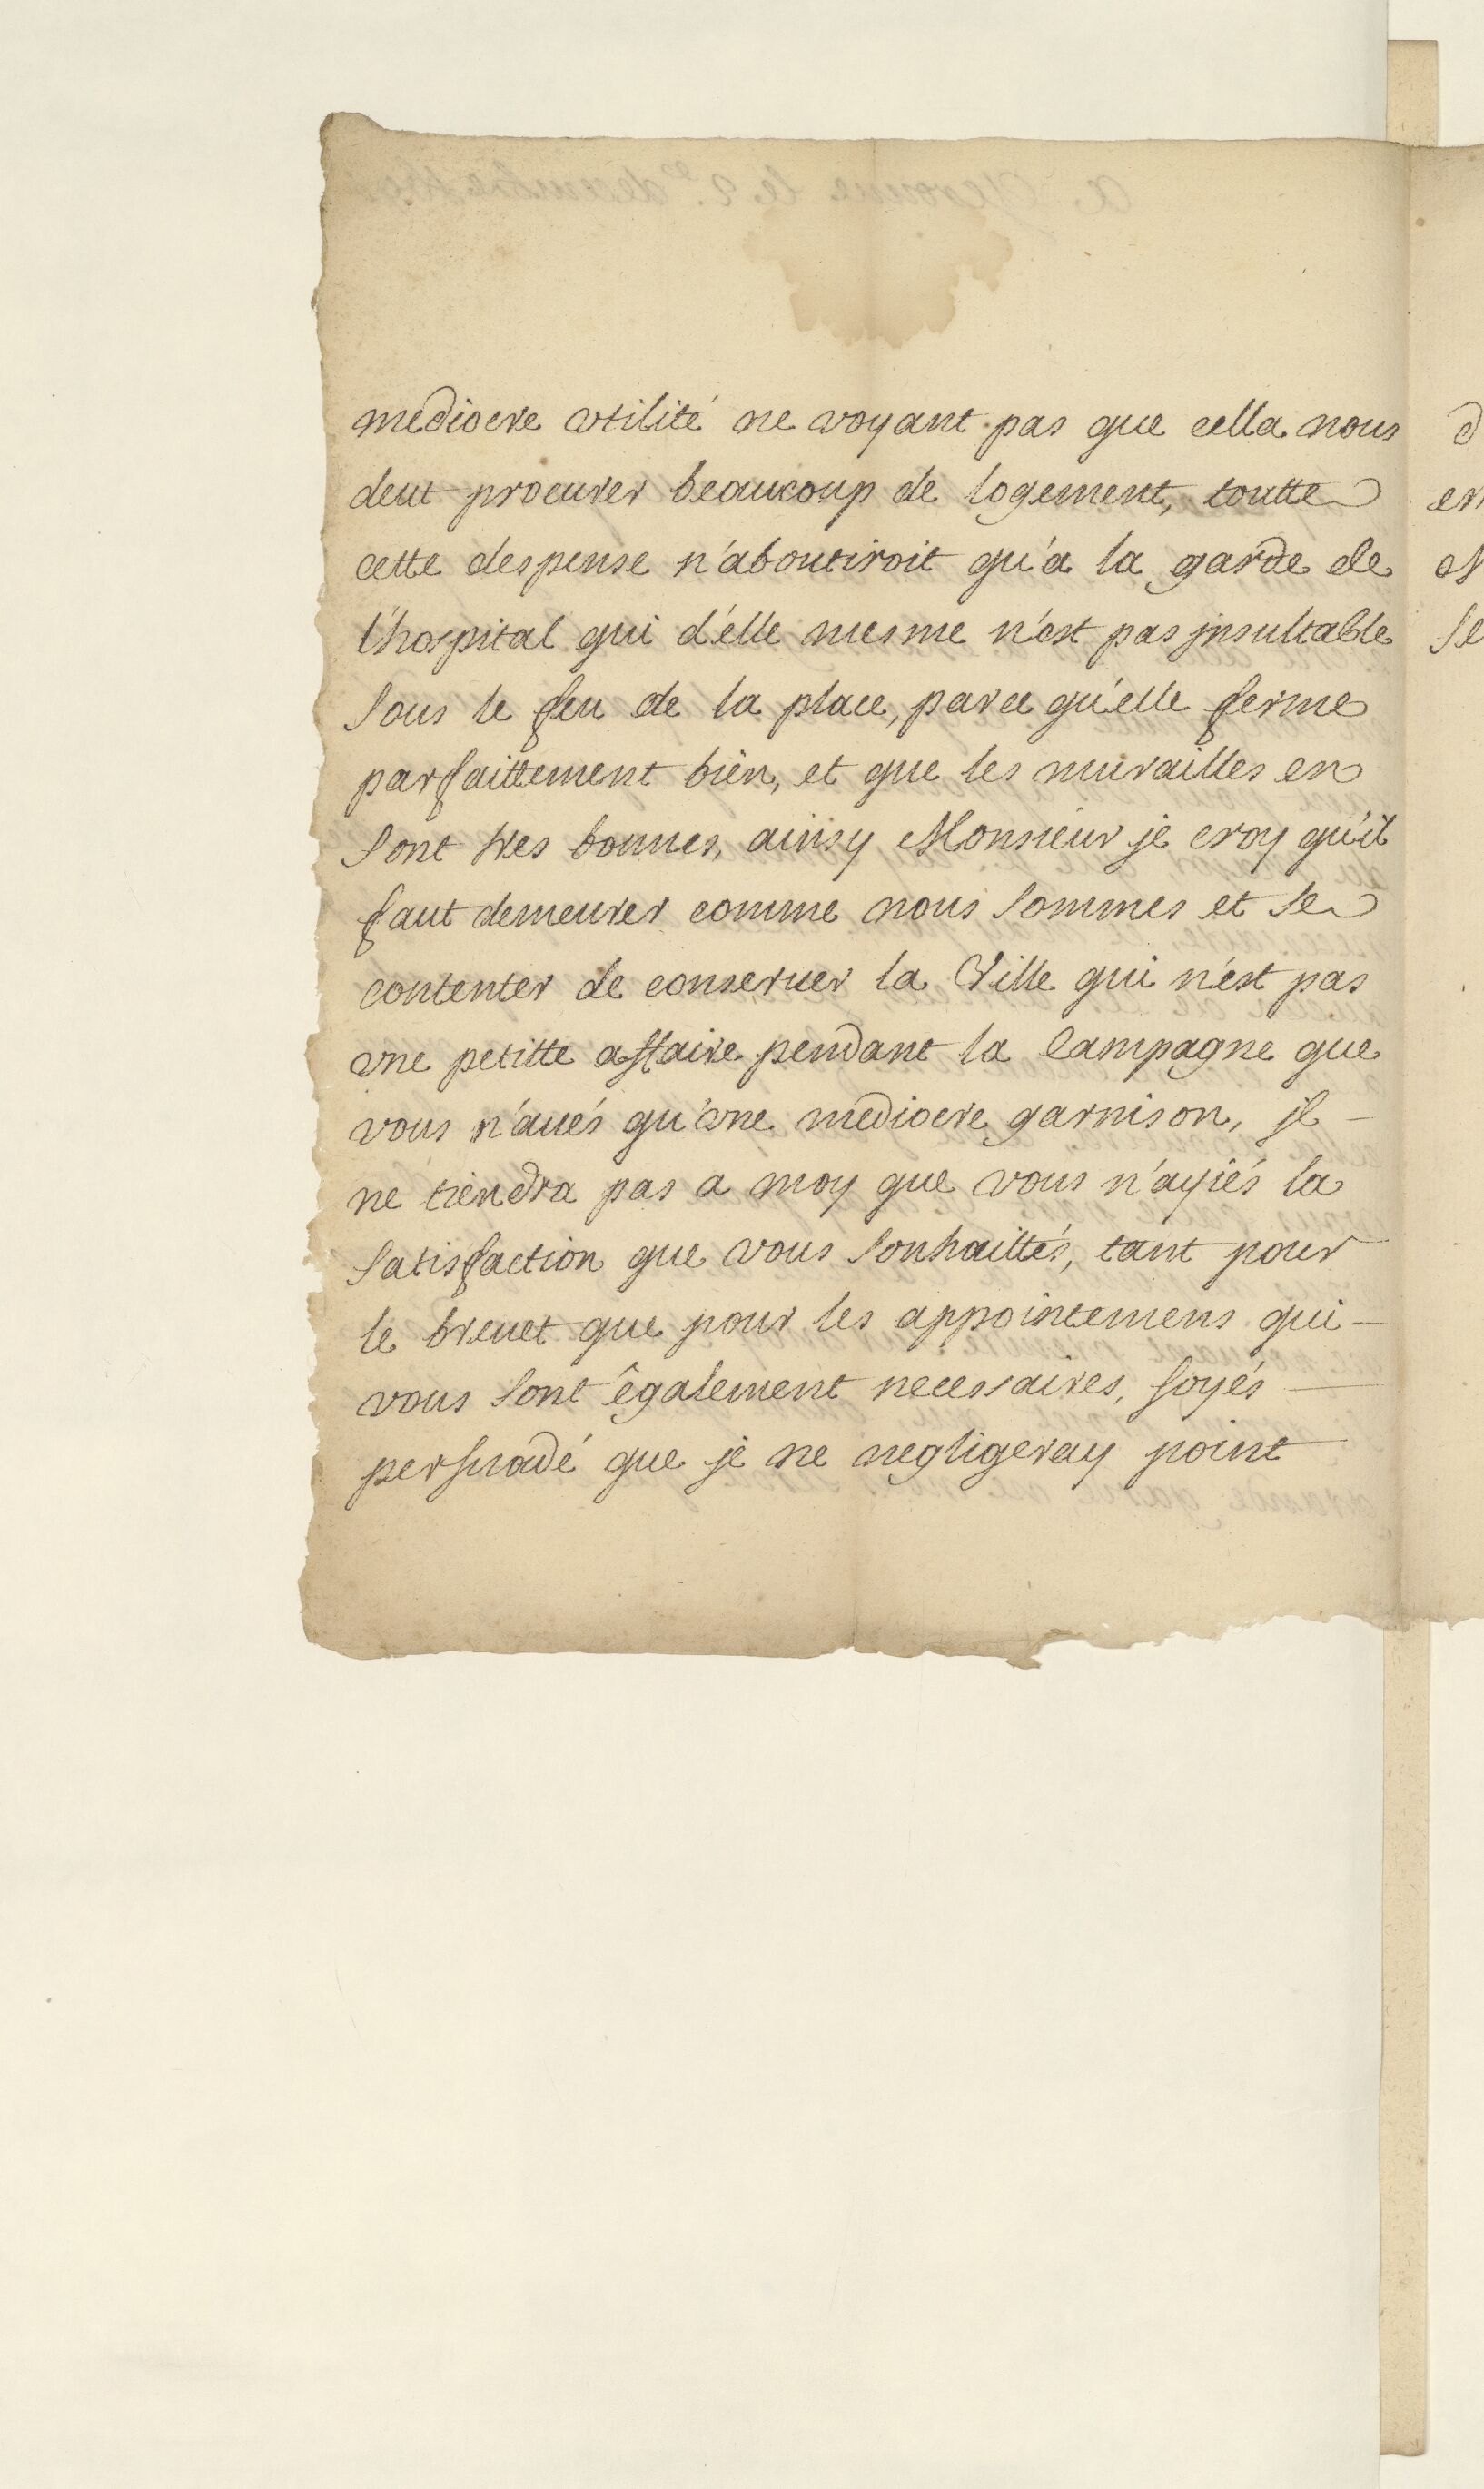 mediocre vtilité ne voyant pas que cella nous
deut procurer beaucoup de logement, toutte
cette despense n'aboutiroit qu'a la garde de
l'hospital qui d'elle mesme n'est pas jnsultable
sous le feu de la place, parce qu'elle ferme
parfaittement bien, et que les murailles en
sont tres bonnes, ainsy Monsieur je croy qu'il
faut demeurer comme nous sommes et se
contenter de conseruer la Ville qui n'est pas
vne petitte affaire pendant la Campagne que
vous n'aués qu'vne mediocre garnison, jl
ne tiendra pas a moy que vous n'ayiés la
satisfaction que vous souhaittés, tant pour
le breuet que pour les appointemens qui
vous sont également necessaires, soyés
persuadé que je ne negligeray point